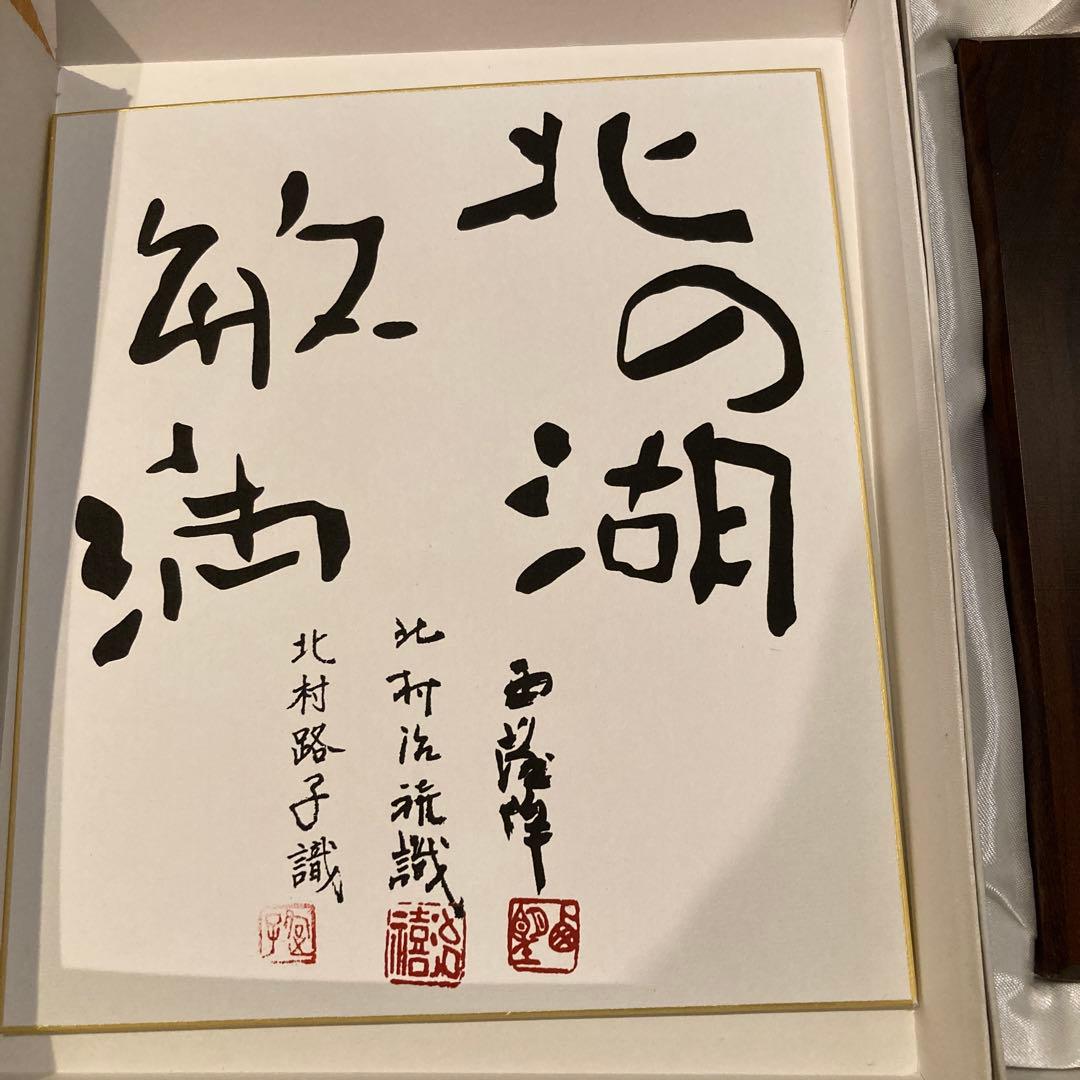 北の湖
敏満
西
北村治禧識
北村路子識